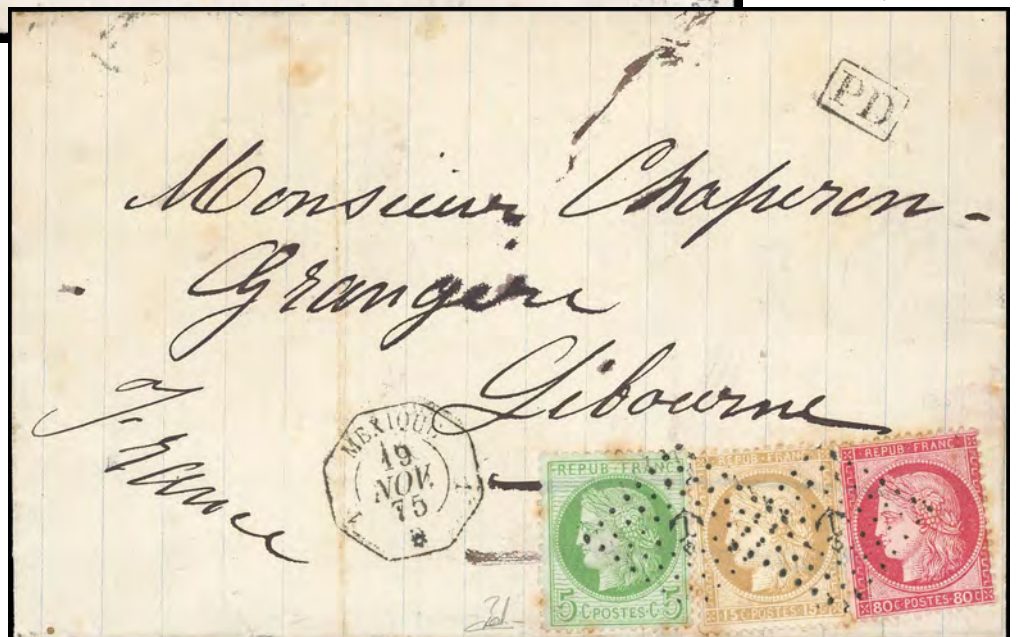 PD
Monsieur Chaperon-
Grangère
Libourne
France
MEXIQUE
19
NOV.
75
REPUB·FRANC
5 C·POSTES·C 5
REPUB·FRANC
15 C·POSTES·15
REPUB·FRANC
80C·POSTES·80C